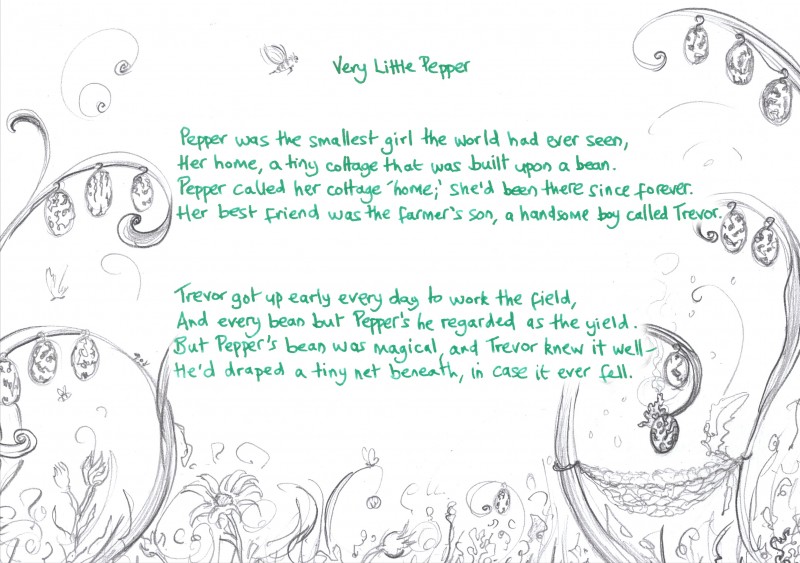 Very Little Pepper
Pepper was the smallest girl the world had ever seen,
Her home, a tiny cottage that was built upon a bean.
Pepper called her cottage 'home;' she'd been there since forever.
Her best friend was the farmer's son, a handsome boy called Trevor.
Trevor got up early every day to work the field,
And every bean but Pepper's he regarded as the yield.
But Pepper's bean was magical, and Trevor knew it well–
He'd draped a tiny net beneath, in case it ever fell.